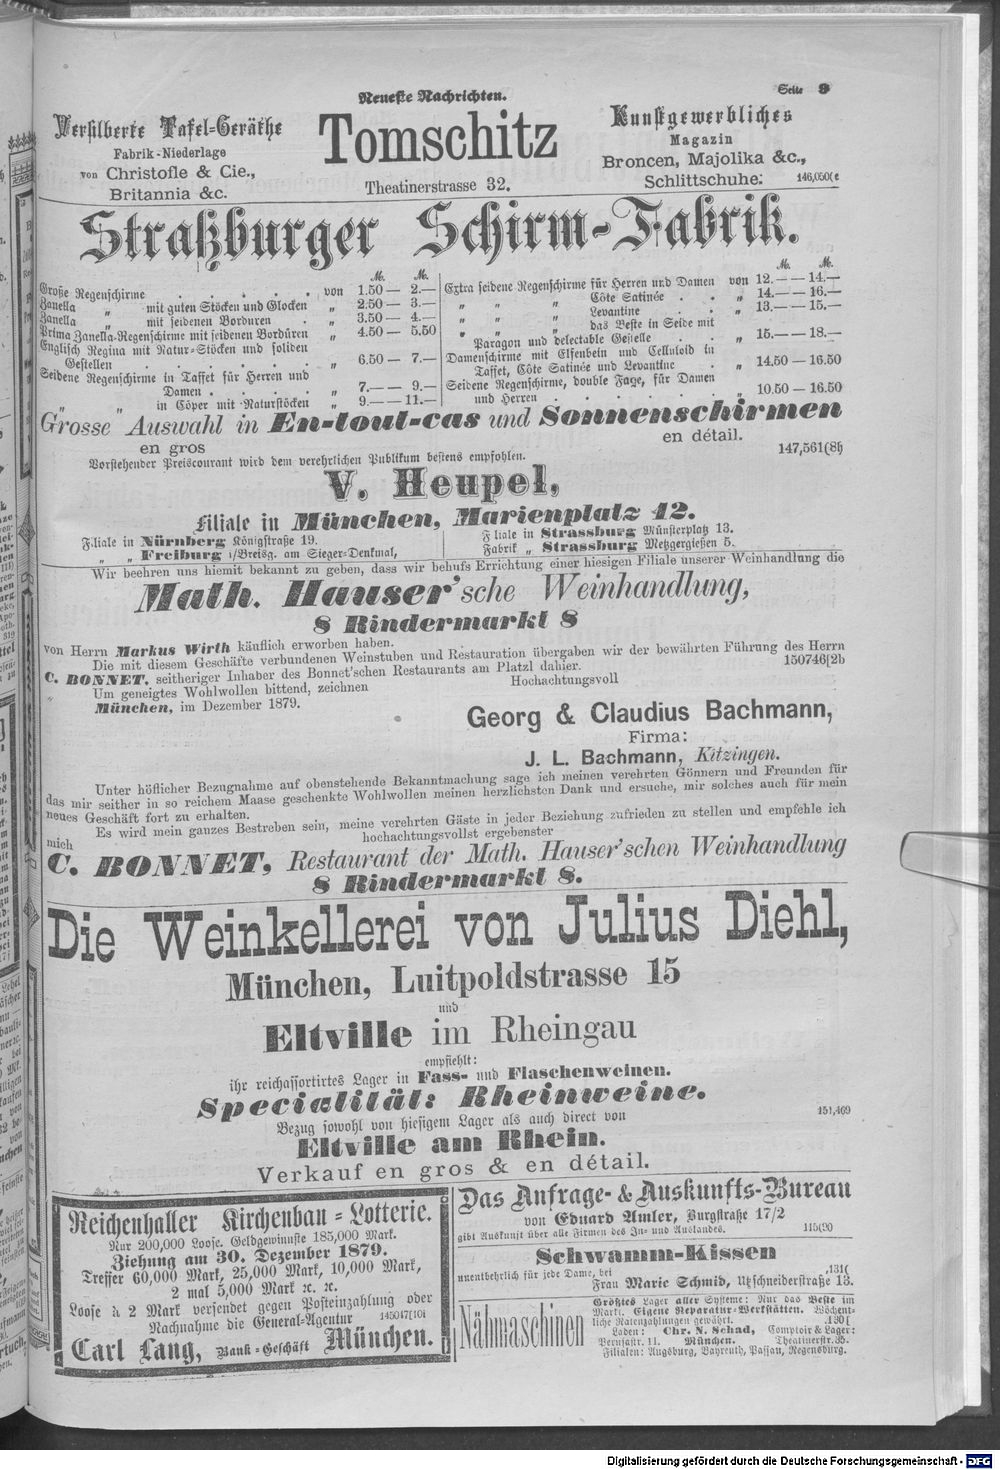 Neueste Nachrichten.
Seite 9
Versilberte Tafel-Geräthe
Fabrik-Niederlage
von Christofle & Cie.,
Britannia &c.
Tomschitz
Theatinerstrasse 32.
Kunstgewerbliches
Magazin
Broncen, Majolika &c.,
Schlittschuhe. 146,050(e
Straßburger Schirm-Fabrik.
M. M.
Große Regenschirme . . . . von 1.50 — 2.—
Zanella „ mit guten Stöcken und Glocken „ 2.50 — 3.—
Zanella „ mit seidenen Borduren . „ 3.50 — 4.—
Prima Zanella-Regenschirme mit seidenen Bordüren „ 4.50 — 5.50
Englisch Regina mit Natur-Stöcken und soliden
Gestellen . . . . . . „ 6.50 — 7.—
Seidene Regenschirme in Taffet für Herren und
Damen . . . . „ 7.— — 9.—
„ „ in Cöper mit Naturstöcken „ 9.— — 11.—
M. M.
Extra seidene Regenschirme für Herren und Damen von 12.— — 14.—
„ „ „ Côte Satinée . . „ 14.— — 16.—
„ „ „ Levantine . . „ 13.— — 15.—
„ „ „ das Beste in Seide mit
Paragon und delectable Gestelle . . „ 15.— — 18.—
Damenschirme mit Elfenbein und Celluloid in
Taffet, Côte Satinée und Levantine . „ 14.50 — 16.50
Seidene Regenschirme, double Façe, für Damen
und Herren . . . . . . „ 10.50 — 16.50
Grosse Auswahl in En-tout-cas und Sonnenschirmen
en gros en détail.
Vorstehender Preiscourant wird dem verehrlichen Publikum bestens empfohlen. 147,561(8h
V. Heupel,
Filiale in München, Marienplatz 12.
Filiale in Nürnberg Königstraße 19.
„ „ Freiburg i/Breisg. am Sieger-Denkmal,
Filiale in Strassburg Münsterplatz 13.
Fabrik „ Strassburg Metzgergießen 5.
Wir beehren uns hiemit bekannt zu geben, dass wir behufs Errichtung einer hiesigen Filiale unserer Weinhandlung die
Math. Hauser'sche Weinhandlung,
8 Rindermarkt 8
von Herrn Markus Wirth käuflich erworben haben.
Die mit diesem Geschäfte verbundenen Weinstuben und Restauration übergaben wir der bewährten Führung des Herrn
C. BONNET, seitheriger Inhaber des Bonnet'schen Restaurants am Platzl dahier. 150746[2b
Um geneigtes Wohlwollen bittend, zeichnen Hochachtungsvoll
München, im Dezember 1879.
Georg & Claudius Bachmann,
Firma:
J. L. Bachmann, Kitzingen.
Unter höflicher Bezugnahme auf obenstehende Bekanntmachung sage ich meinen verehrten Gönnern und Freunden für
das mir seither in so reichem Maase geschenkte Wohlwollen meinen herzlichsten Dank und ersuche, mir solches auch für mein
neues Geschäft fort zu erhalten.
Es wird mein ganzes Bestreben sein, meine verehrten Gäste in jeder Beziehung zufrieden zu stellen und empfehle ich
mich hochachtungsvollst ergebenster
C. BONNET, Restaurant der Math. Hauser'schen Weinhandlung
8 Rindermarkt 8.
Die Weinkellerei von Julius Diehl,
München, Luitpoldstrasse 15
und
Eltville im Rheingau
empfiehlt:
ihr reichassortirtes Lager in Fass- und Flaschenweinen.
Specialität: Rheinweine.
Bezug sowohl von hiesigem Lager als auch direct von 151,469
Eltville am Rhein.
Verkauf en gros & en détail.
Reichenhaller Kirchenbau-Lotterie.
Nur 200,000 Loose. Geldgewinnste 185,000 Mark.
Ziehung am 30. Dezember 1879.
Treffer 60,000 Mark, 25,000 Mark, 10,000 Mark,
2 mal 5,000 Mark &c. &c.
Loose à 2 Mark versendet gegen Posteinzahlung oder
Nachnahme die General-Agentur 145047[10i
Carl Lang, Bank-Geschäft München.
Das Anfrage- & Auskunfts-Bureau
von Eduard Amler, Burgstraße 17/2
gibt Auskunft über alle Firmen des In- und Auslandes. 115(90
Schwamm-Kissen
unentbehrlich für jede Dame, bei ,131(
Frau Marie Schmid, Utzschneiderstraße 13.
Nähmaschinen
Größtes Lager aller Systeme: Nur das Beste im
Markt. Eigene Reparatur-Werkstätten. Wöchent-
liche Ratenzahlungen gewährt.
Laden: Chr. N. Schad, Comptoir & Lager:
München. Theatinerstr. 35.
Filialen: Augsburg, Bayreuth, Passau, Regensburg.
Digitalisierung gefördert durch die Deutsche Forschungsgemeinschaft - DFG